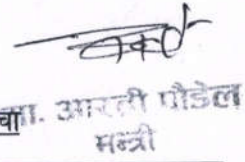 वा
मा. आरती पौडेल
मन्त्री